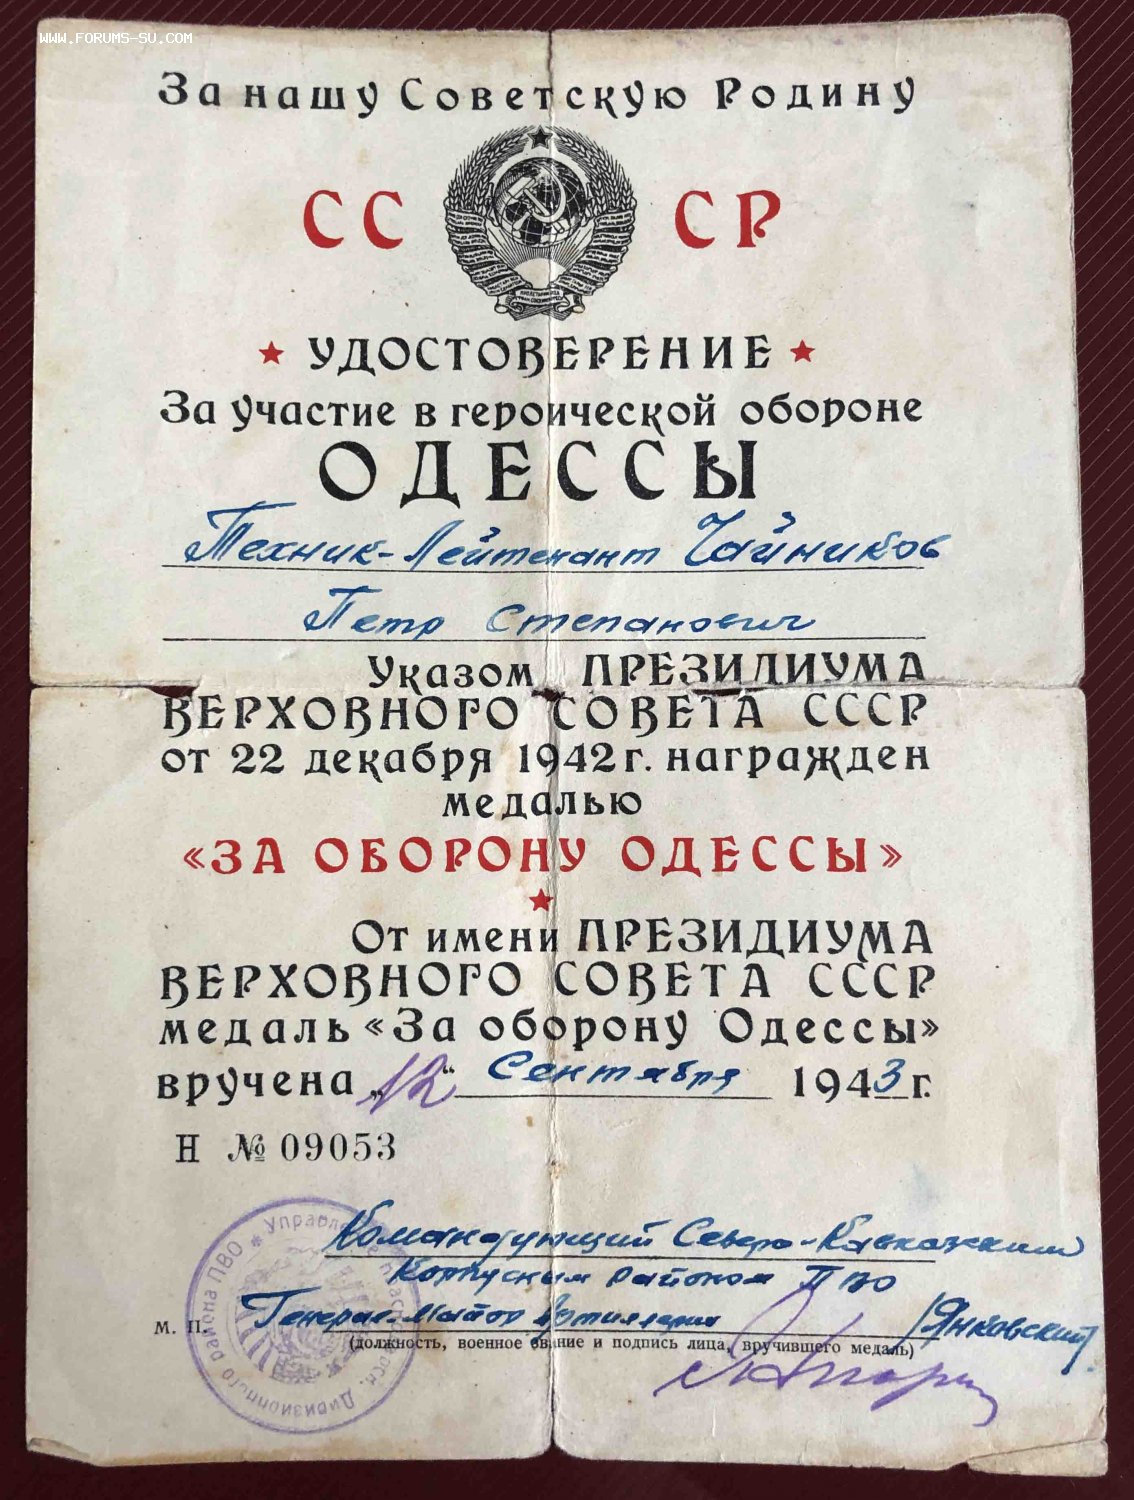 WWW.FORUMS-SU.COM
За нашу Советскую Родину
СС СР
УДОСТОВЕРЕНИЕ
За участие в героической обороне
ОДЕССЫ
Техник-Лейтенант Чайников
Петр Степанович
Указом ПРЕЗИДИУМА
ВЕРХОВНОГО СОВЕТА СССР
от 22 декабря 1942 г. награжден
медалью
«ЗА ОБОРОНУ ОДЕССЫ»
От имени ПРЕЗИДИУМА
ВЕРХОВНОГО СОВЕТА СССР
медаль «За оборону Одессы»
вручена „12“ Сентября 1943 г.
Н № 09053
Командующий Северо-Кавказским
Корпусным районом ПВО
Генерал-Майор Артиллерии /Янковский/
М. П.
(должность, военное звание и подпись лица, вручившего медаль)
района ПВО * Управление
Дивизионного